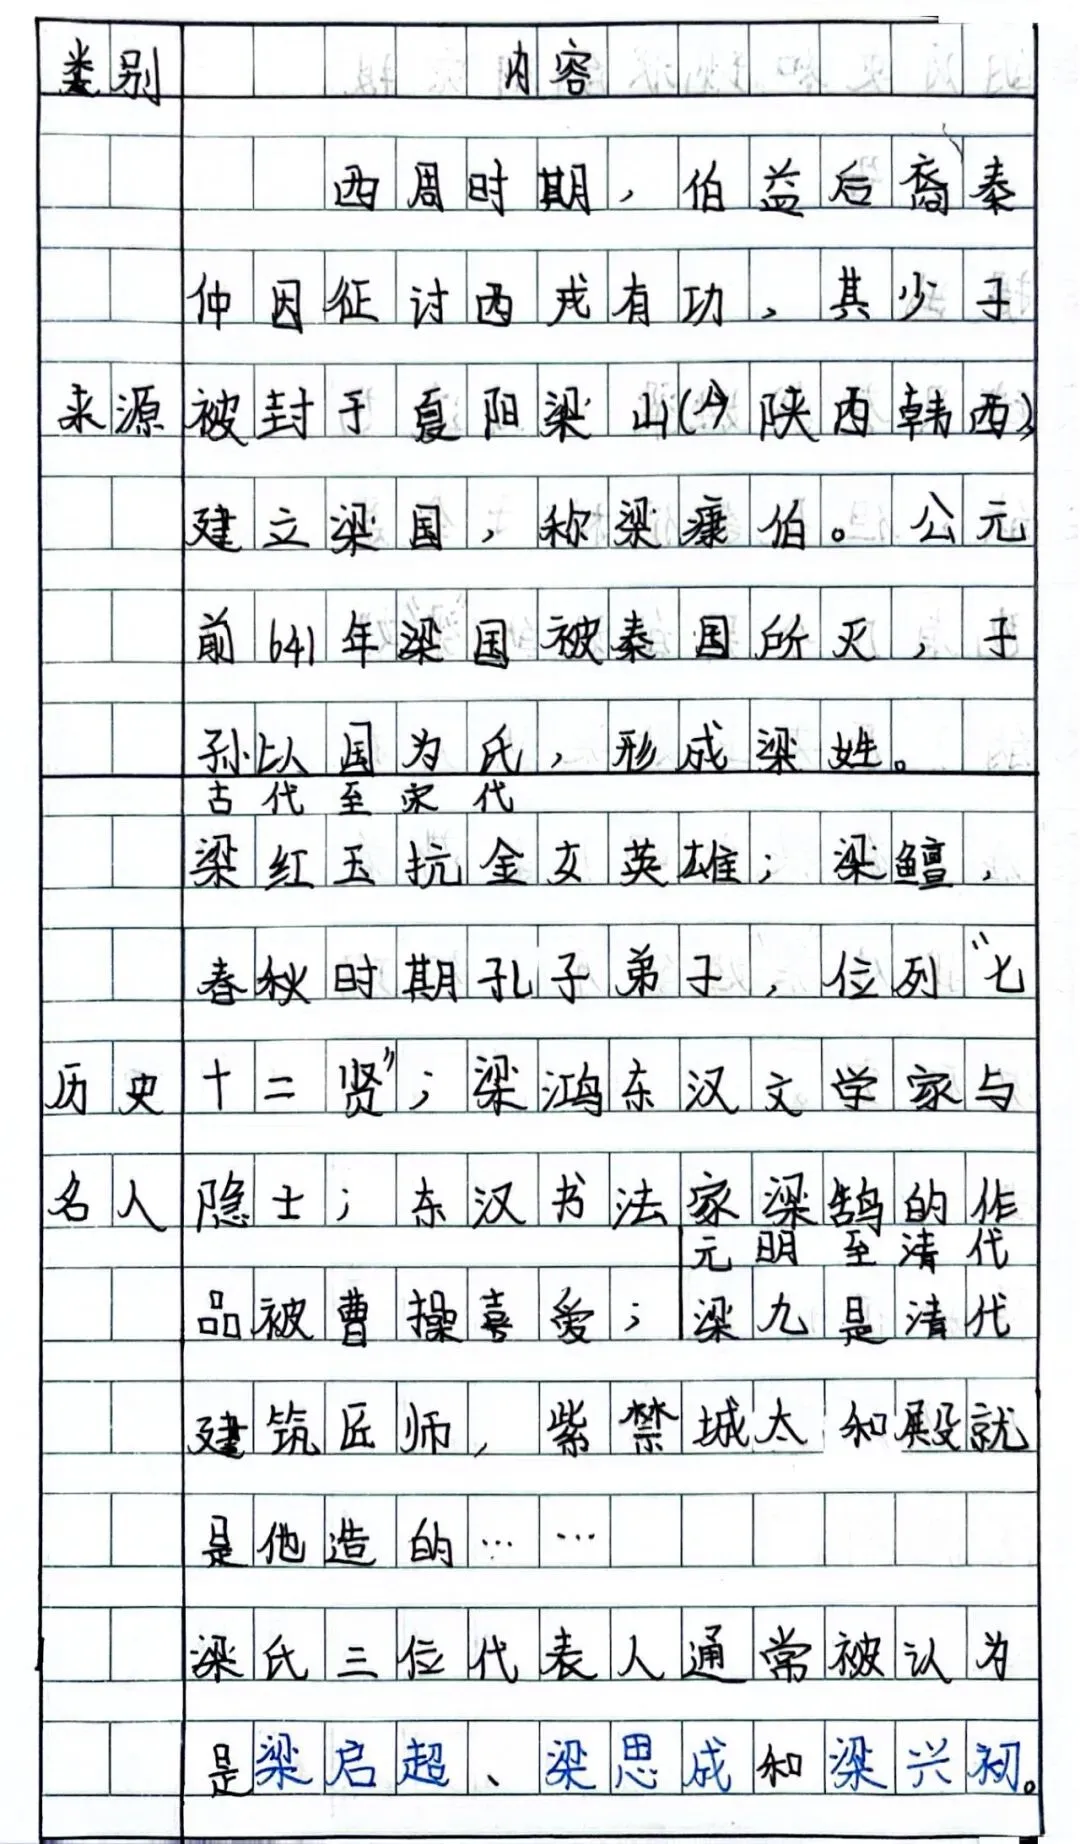 类别 内容
西周时期，伯益后裔秦
仲因征讨西戎有功，其少子
来源 被封于夏阳梁山(今陕西韩西)，
建立梁国，称梁康伯。公元
前641年梁国被秦国所灭，子
孙以国为氏，形成梁姓。
古代至宋代
梁红玉抗金女英雄；梁鳣，
春秋时期孔子弟子，位列“七
历史 十二贤”；梁鸿东汉文学家与
名人 隐士；东汉书法家梁鹄的作
元明至清代
品被曹操喜爱；梁九是清代
建筑匠师，紫禁城太和殿就
是他造的……
梁氏三位代表人通常被认为
是梁启超、梁思成和梁兴初。